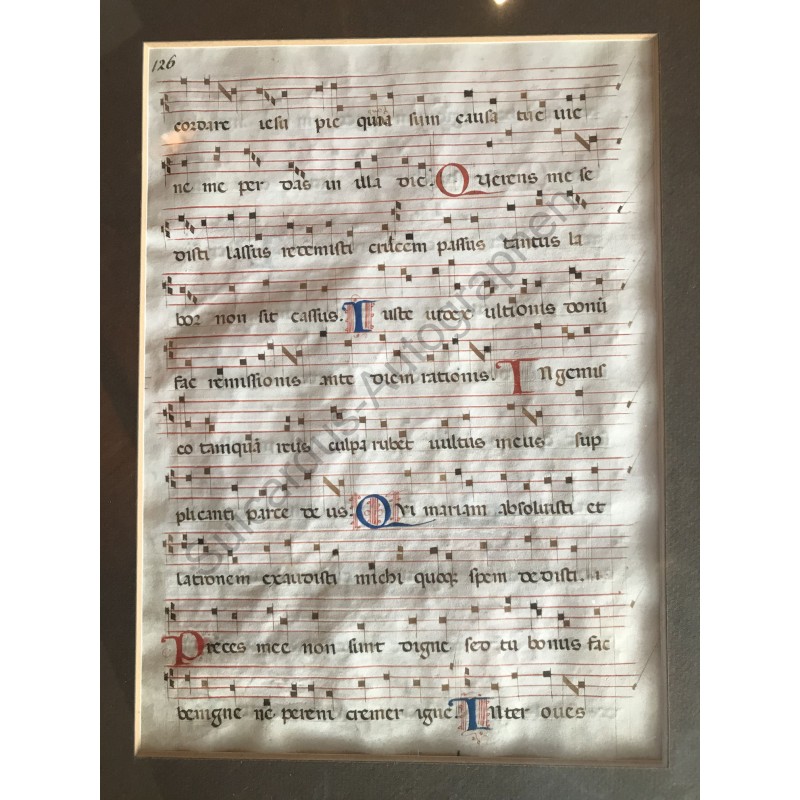 126
cordare iesu pie quia sum causa tue vie
ne me per das in illa die. Querens me se
disti lassus redemisti crucem passus tantus la
bor non sit cassus. Iuste iudex ultionis donū
fac remissionis ante diem rationis. Ingemis
co tamquā reus culpa rubet vultus meus sup
plicanti parce de us. Qui mariam absolvisti et
lationem exaudisti michi quoqz spem dedisti.
Preces mee non sunt digne sed tu bonus fac
benigne ne perem cremer igne. Inter oves
Suicardus-Autographen